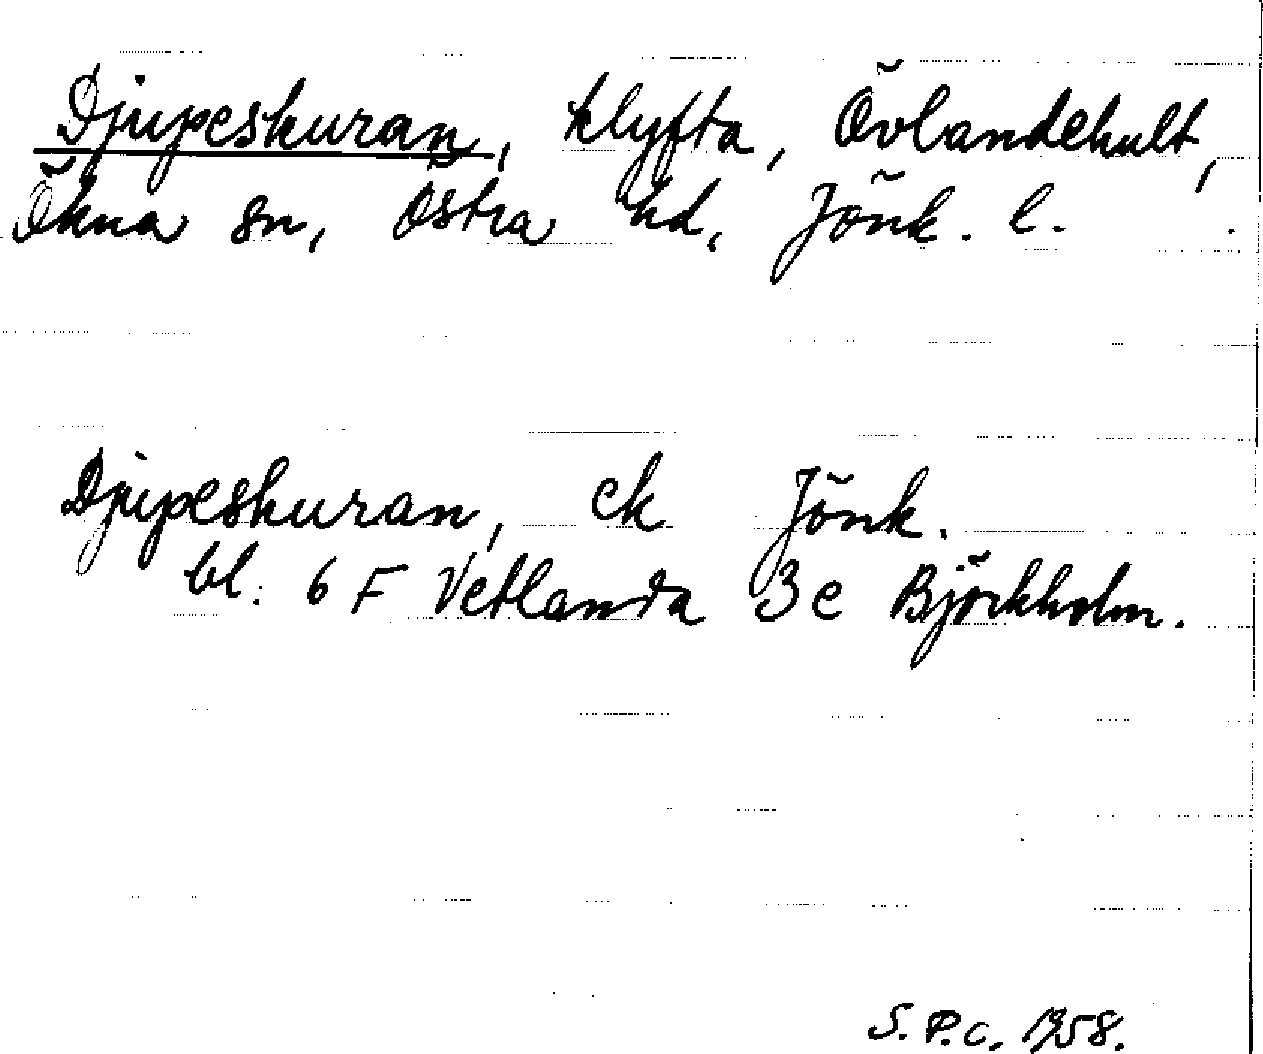 Djupeskuran, klyfta, Övlandehult,
Ökna sn, Östra hd, Jönk. l.
Djupeskuran, ek Jönk.
bl. 6 F Vetlanda 3 e Björkholm.
S.P.C. 1958.